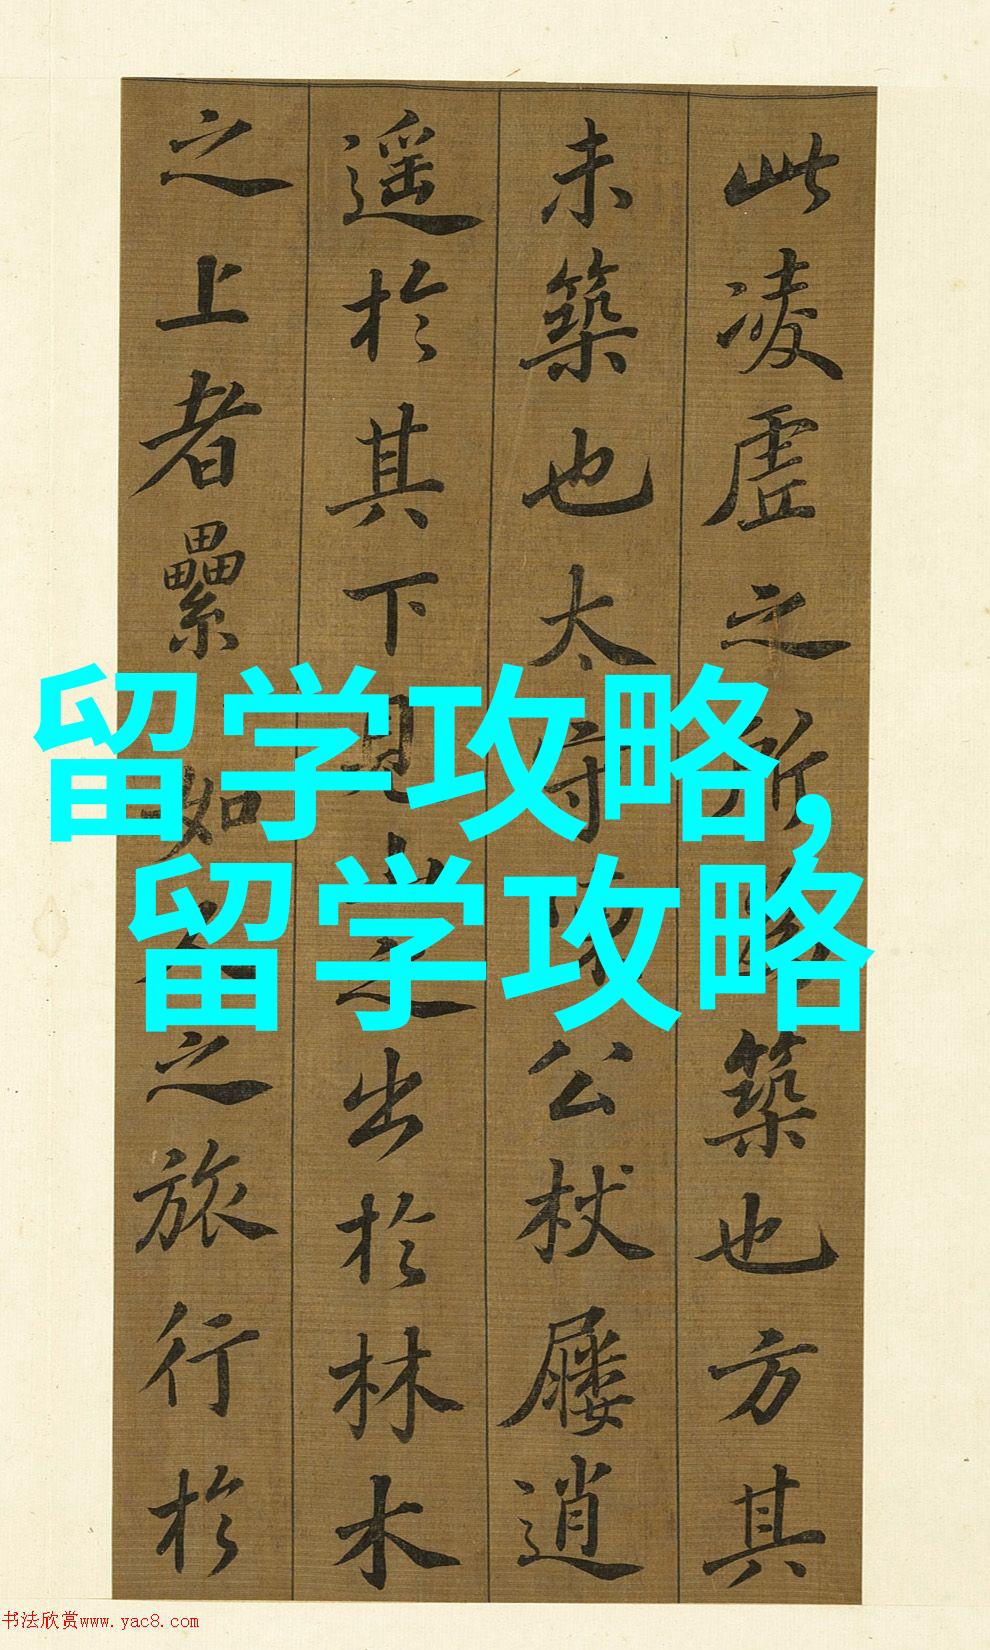 此凌虛之所築也方其
未築也太守公杖屨逍
遥於其下見之出於林木
之上者纍如人之旅行於
留学攻略,
留学攻略
书法欣赏www.yac8.com